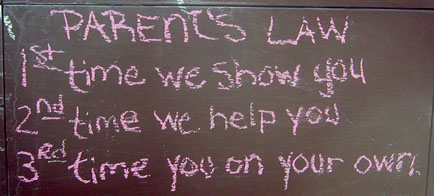 PARENTS LAW
1st time we show you
2nd time we help you
3rd time you on your own.